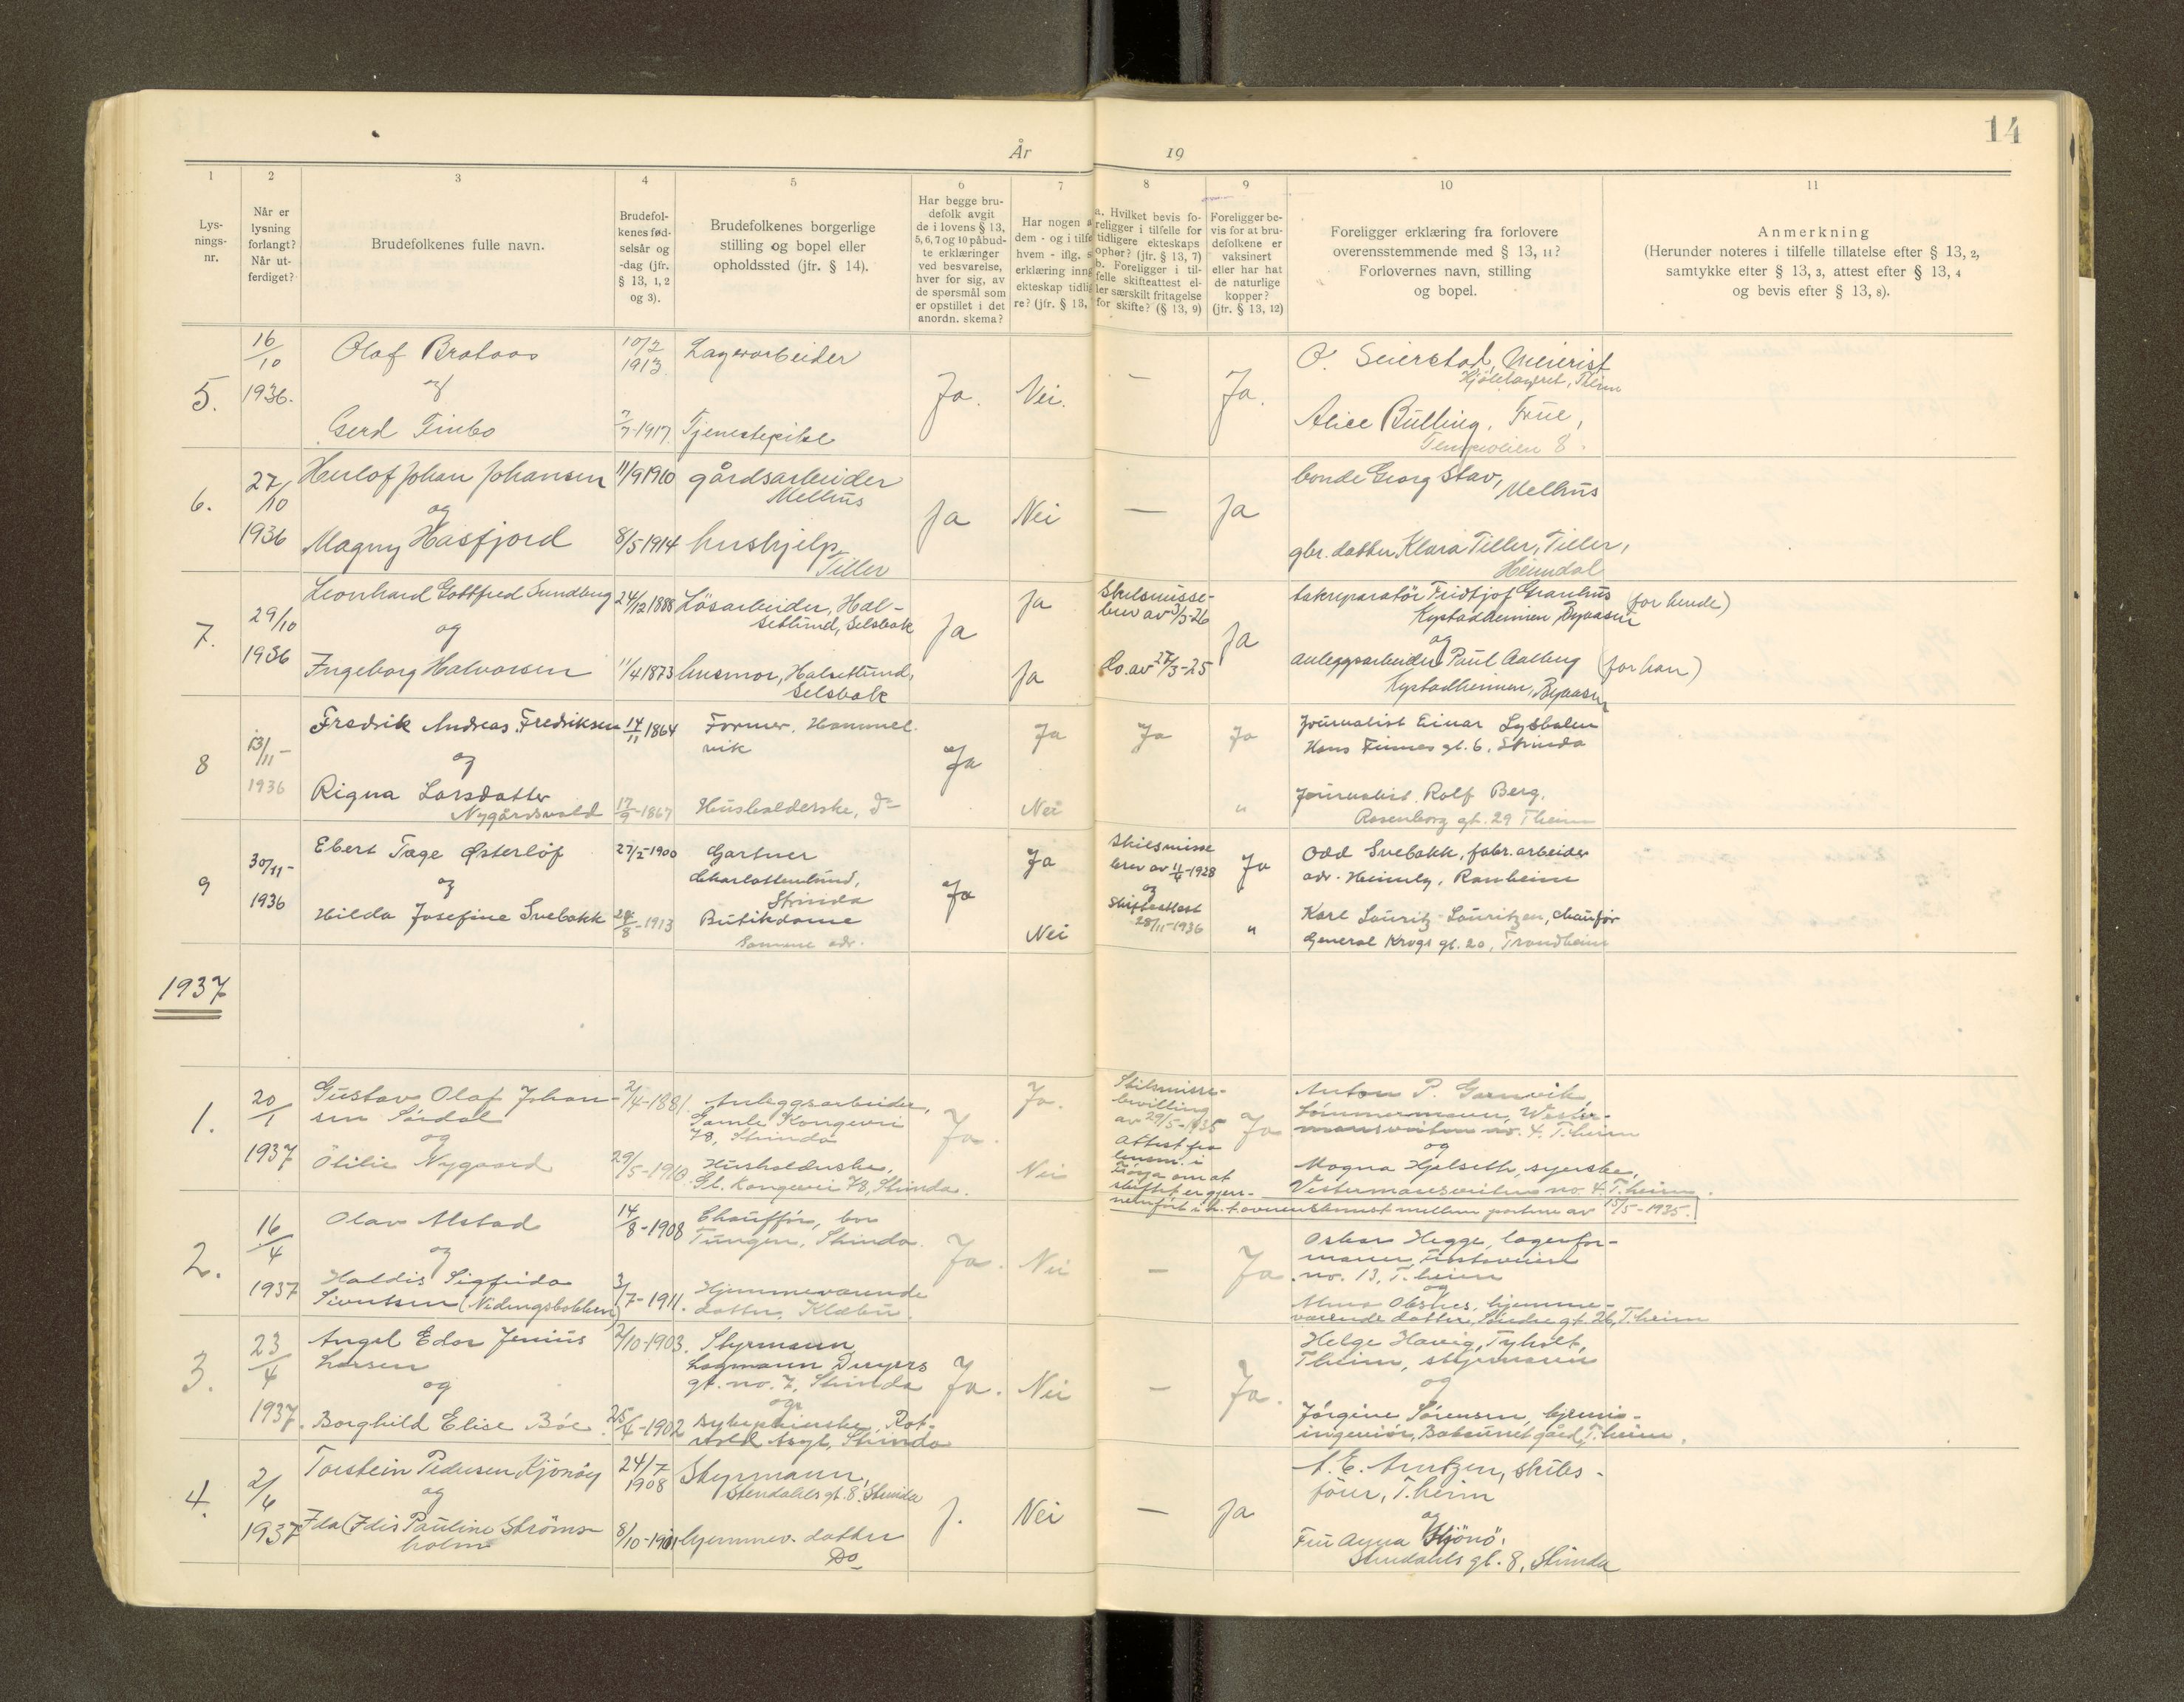 14
År 19
1
2
3
4
5
6
7
8
9
10
11
Lys-
nings-
nr.
Når er
lysning
forlangt?
Når ut-
ferdiget?
Brudefolkenes fulle navn.
Brudefol-
kenes fød-
selsår og
-dag (jfr.
§ 13, 1, 2
og 3).
Brudefolkenes borgerlige
stilling og bopel eller
opholdssted (jfr. § 14).
Har begge bru-
defolk avgit
de i lovens § 13,
5, 6, 7 og 10 påbud-
te erklæringer
ved besvarelse,
hver for sig, av
de spørsmål som
er opstillet i det
anordn. skema?
Har nogen a
dem - og i tilfe
hvem - iflg. s
erklæring inng
ekteskap tidlig
re? (jfr. § 13,
a. Hvilket bevis fo-
religger i tilfelle for
tidligere ekteskaps
ophør? (jfr. § 13, 7)
b. Foreligger i til-
felle skifteattest el-
ler særskilt fritagelse
for skifte? (§ 13, 9)
Foreligger be-
vis for at bru-
defolkene er
vaksinert
eller har hat
de naturlige
kopper?
(jfr. § 13, 12)
Foreligger erklæring fra forlovere
overensstemmende med § 13, 11?
Forlovernes navn, stilling
og bopel.
Anmerkning
(Herunder noteres i tilfelle tillatelse efter § 13, 2,
samtykke efter § 13, 3, attest efter § 13, 4
og bevis efter § 13, 8).
5.
16/10
1936.
Olaf Brataas
og
Gerd Finbo
10/2
1913
7/7-1917
Lagerarbeider
Tjenestepike
Ja.
Nei.
—
Ja.
O. Seierstad, Meierist
Kjölelageret, Th.eim
Alice Bulling, Frue,
8.
6.
27/10
1936
Herlof Johan Johansen
og
Magny Hasfjord
11/9 1910
8/5 1914
gårdsarbeider
Melhus
hushjelp
Tiller
Ja
Nei
—
Ja
bonde Georg Stav,
Melhus
gbr. datter Klara Tiller, Tiller,
Heimdal
7.
29/10
1936
Leonhard Gottfred Sundberg
og
Ingeborg Halvorsen
24/12 1888
11/4 1873
Løsarbeider, Hal-
setlund, Selsbak
husmor, Halsetlund,
Selsbak
Ja
Ja
Ja
Skilsmisse-
brev av 3/3-26
do. av 27/3-25
Ja
takreparatör Fridtjof Granhus (for hende)
Kystadheimen, Byaasen
og
anleggsarbeider Paul Aalberg (for han)
Kystadheimen, Byaasen
8
13/11-
1936
Fredrik Andreas Fredriksen
og
Rigna Larsdatter
Nygårdsvold
14/11 1864
17/9-1867
Former. Hommel-
vik
Husholderske, do
Ja
Ja
Nei
Ja
Ja
"
Journalist Einar Lysholm
Hans Finnes gt. 6, Strinda
Journalist Rolf Berg.
Rosenborg gt. 29 Th.eim
9
30/11-
1936
Ebert Tage Østerlöf
og
Hilda Josefine Svebakk
27/2-1900
24/8-1913
Gartner
Charlottenlund,
Strinda
Butikdame
Samme adr.
Ja
Ja
Nei
Skilsmisse
brev av 11/4-1928
og
skifteattest
28/11-1936
Ja
"
Odd Svebakk, fabr. arbeider
adr. Heimly, Ranheim
Karl Lauritz Lauritzen, chauför
General Krogs gt. 20, Trondheim
1937
1.
20/1
1937
Gustav Olaf Johan-
sen Sördal
og
Otilie Nygaard
2/4-1881.
29/5-1910
Anleggsarbeider,
Gamle Kongevei
78, Strinda
Husholderske,
Gl. Kongevei 78, Strinda.
Ja.
Ja.
Nei
Skilsmisse-
bevilling
av 29/5-1935
Attest fra
lensm. i
om at
skiftet er gjen-
nemført i h. t. overenskomst mellem partene av 15/5-1935.
Ja
Anton P. Garnvik,
Tömmermann, Wester-
mansveiten no. 4. T.heim
og
Magna Hjelseth, syerske,
Vestermansveiten no. 4. T.heim.
2.
16/4
1937
Olav Alstad
og
Haldis Sigfrida
Sivertsen (Nidengsbakken)
14/8-1908
3/7-1911.
Chauffør, bor
Tungen, Strinda.
Hjemmeværende
datter, Klæbu.
Ja.
Nei
—
Ja
Oskar Hegge, lagerfor-
mann,
no. 13, T.heim
og
hjemme-
værende datter, Söndre gt. 26, T.heim
3.
23/4
1937.
Angel Edor Jenius
Larsen
og
Borghild Elise Böe
2/10-1903.
25/4-1902
Styrmann
Lagmann Dreyers
gt. no. 7, Strinda
og
sykepleierske, Rot-
voll Asyl, Strinda
Ja.
Nei
—
Ja.
Helge Havig, Tyholt,
Th.eim, styrmann
og
Jörgine Sörensen, kjemi-
ingeniör, Baksundgård, T.heim.
4.
2/6
1937
Torstein Pedersen Kjönöy
og
Ida (Idis Pauline Ströms-
holm
24/7
1908
8/10-1911
Styrmann,
Stendahls gt. 8, Strinda
hjemmev. datter
Do
J.
Nei
—
Ja
A. E. Arntzen, skibs-
förer, T.heim
og
Fru Anna Kjönö,
Stendahls gt. 8, Strinda